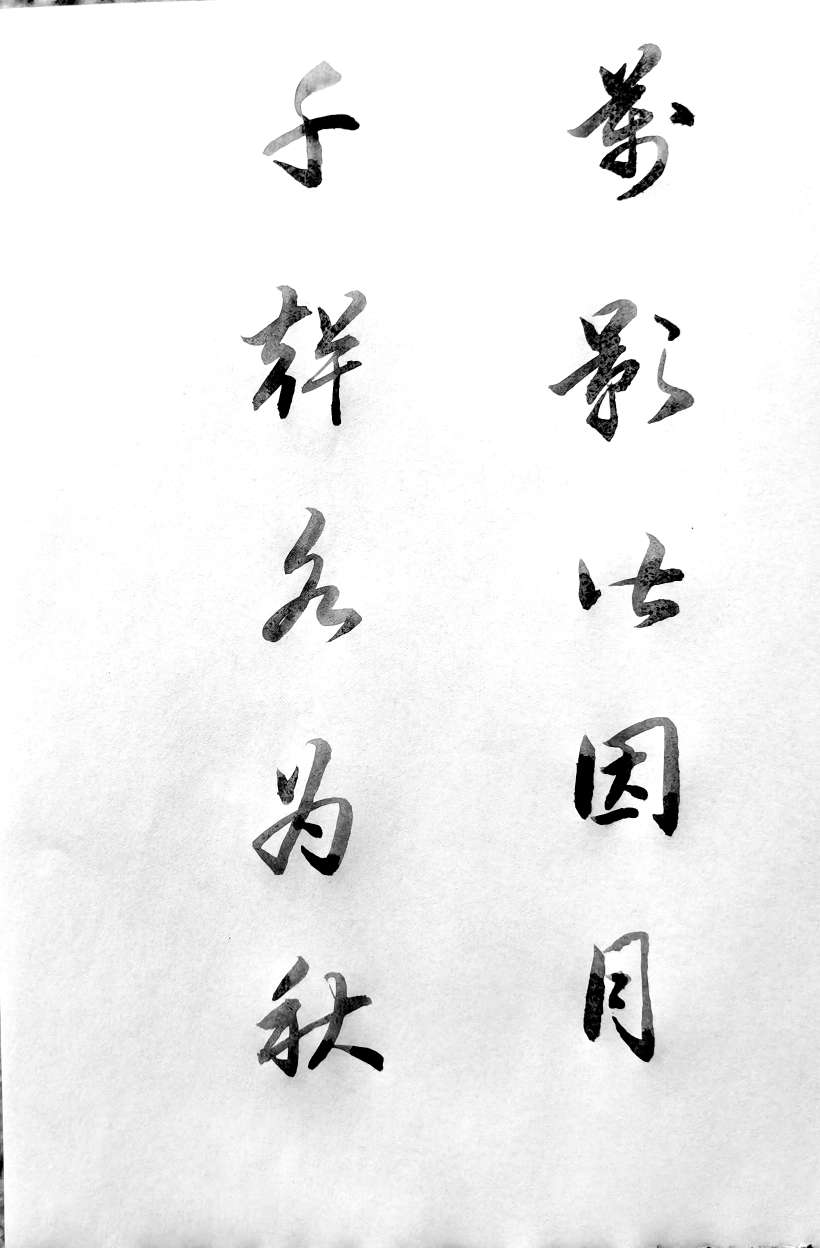 萬影皆因月
千聲各为秋